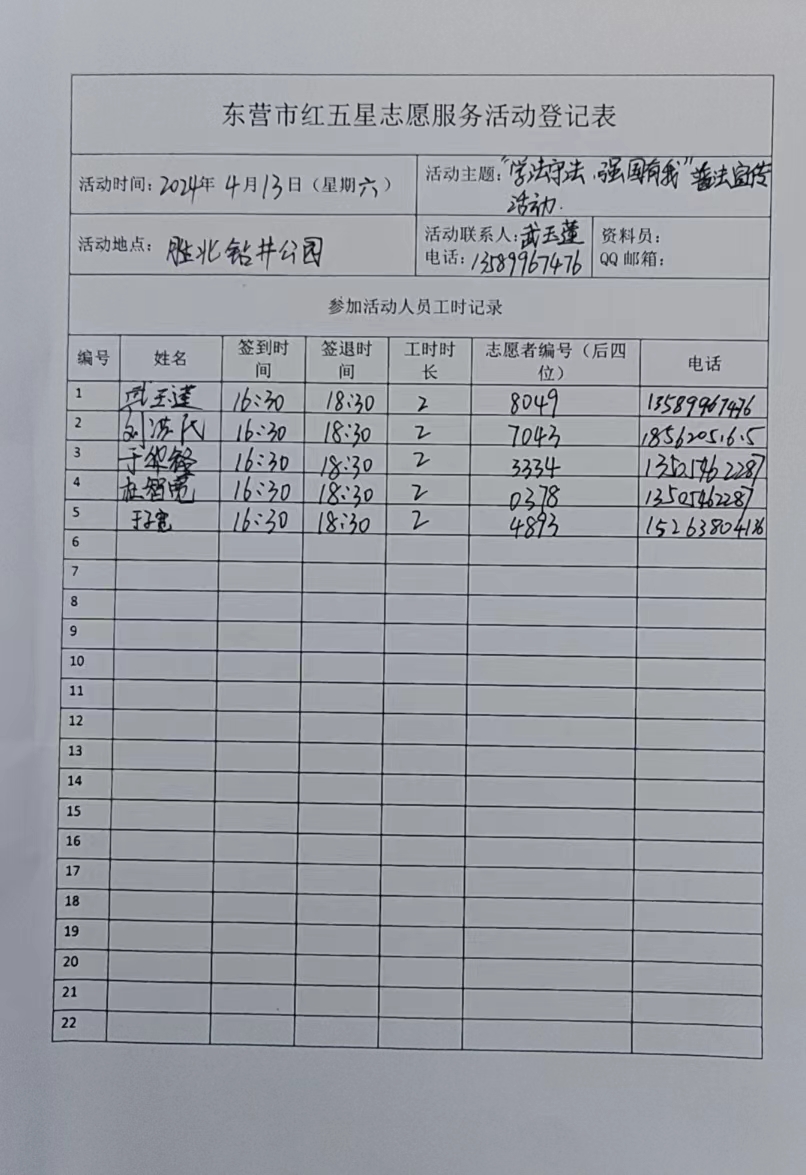 东营市红五星志愿服务活动登记表
活动时间：2024年 4月13日（星期六）
活动主题：“学法守法，强国有我”普法宣传
活动.
活动地点： 胜北钻井公园
活动联系人：武玉莲
电话：13589967476
资料员：
QQ邮箱：
参加活动人员工时记录
编号 姓名 签到时间 签退时间 工时时长 志愿者编号（后四位） 电话
1 武玉莲 16:30 18:30 2 8049 13589967476
2 16:30 18:30 2 7043
3 16:30 18:30 2 3334
4 杜智宽 16:30 18:30 2 0378 13505462287
5 于子宽 16:30 18:30 2 4893 15263804126
6
7
8
9
10
11
12
13
14
15
16
17
18
19
20
21
22